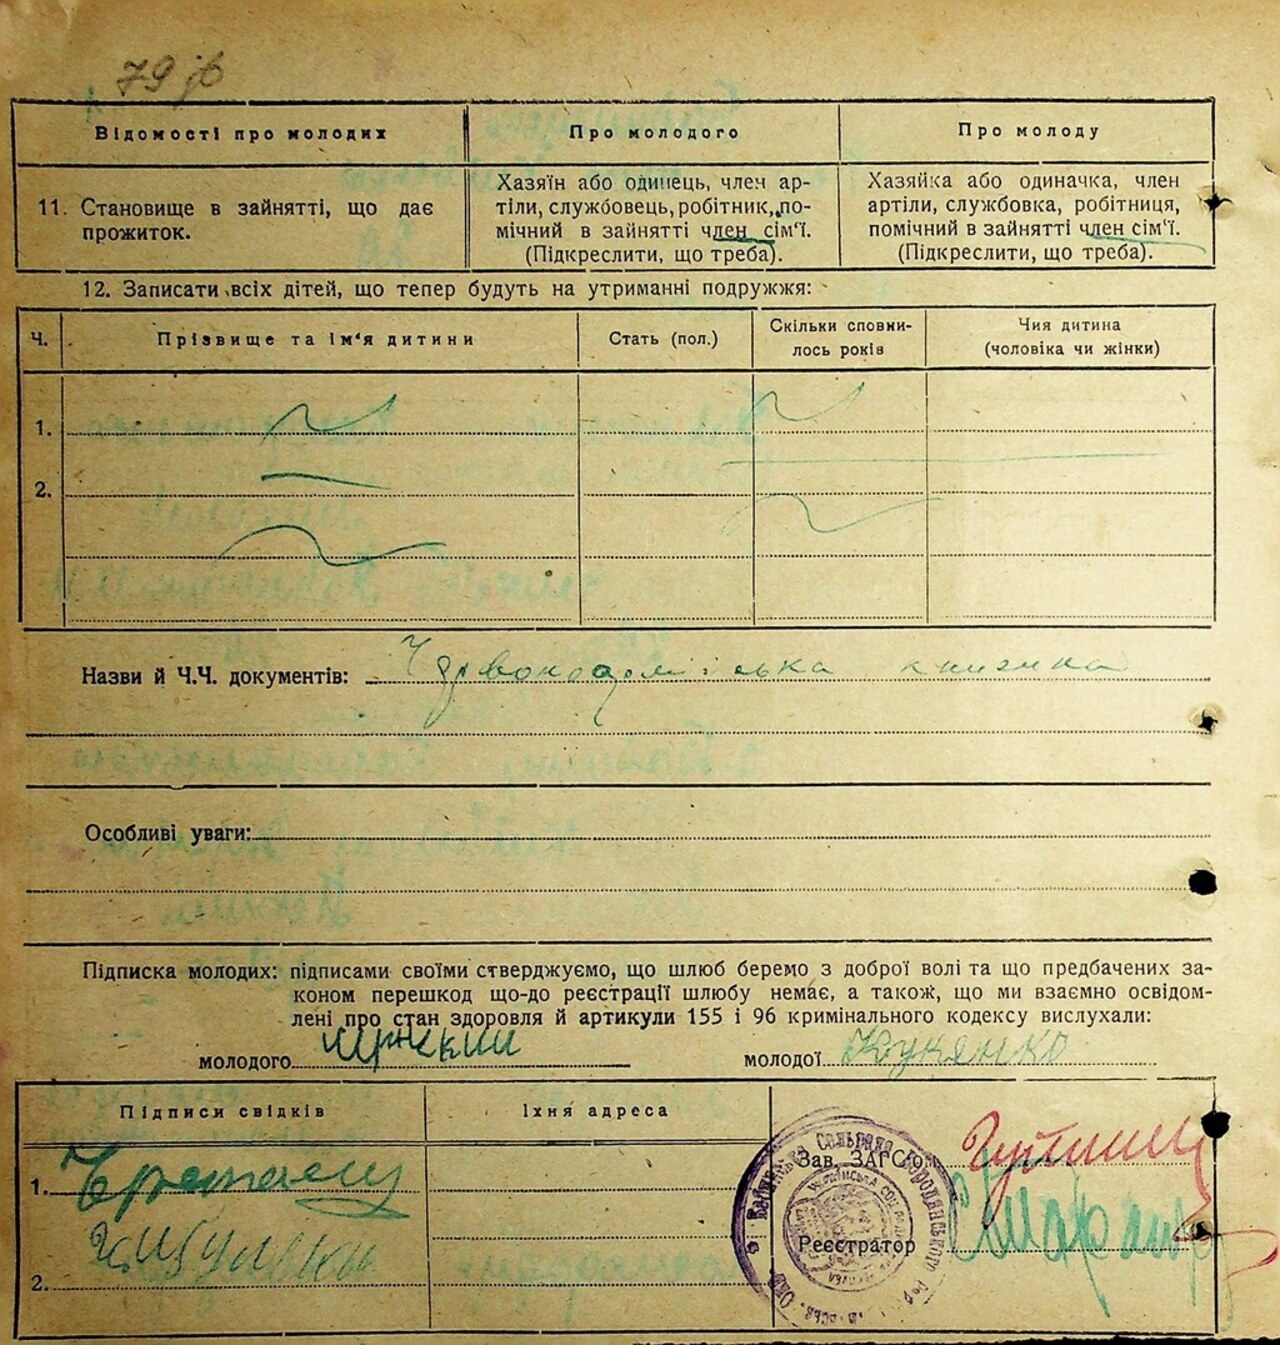 79
Відомості про молодих
Про молодого
Про молоду
11. Становище в зайнятті, що дає
прожиток.
Хазяїн або одинець, член ар-
тіли, службовець, робітник, по-
мічний в зайнятті член сім'ї.
(Підкреслити, що треба).
Хазяйка або одиначка, член
артіли, службовка, робітниця,
помічний в зайнятті член сім'ї.
(Підкреслити, що треба).
12. Записати всіх дітей, що тепер будуть на утриманні подружжя:
Ч.
Прізвище та ім'я дитини
Стать (пол.)
Скільки сповни-
лось років
Чия дитина
(чоловіка чи жінки)
1.
2.
Назви й Ч.Ч. документів: Червоноармійська книжка
Особливі уваги:
Підписка молодих: підписами своїми стверджуємо, що шлюб беремо з доброї волі та що предбачених за-
коном перешкод що-до реєстрації шлюбу немає, а також, що ми взаємно освідом-
лені про стан здоровля й артикули 155 і 96 кримінального кодексу вислухали:
молодого
молодої
Підписи свідків
Їхня адреса
Зав. ЗАГС'ОМ
1.
Реєстратор
2.